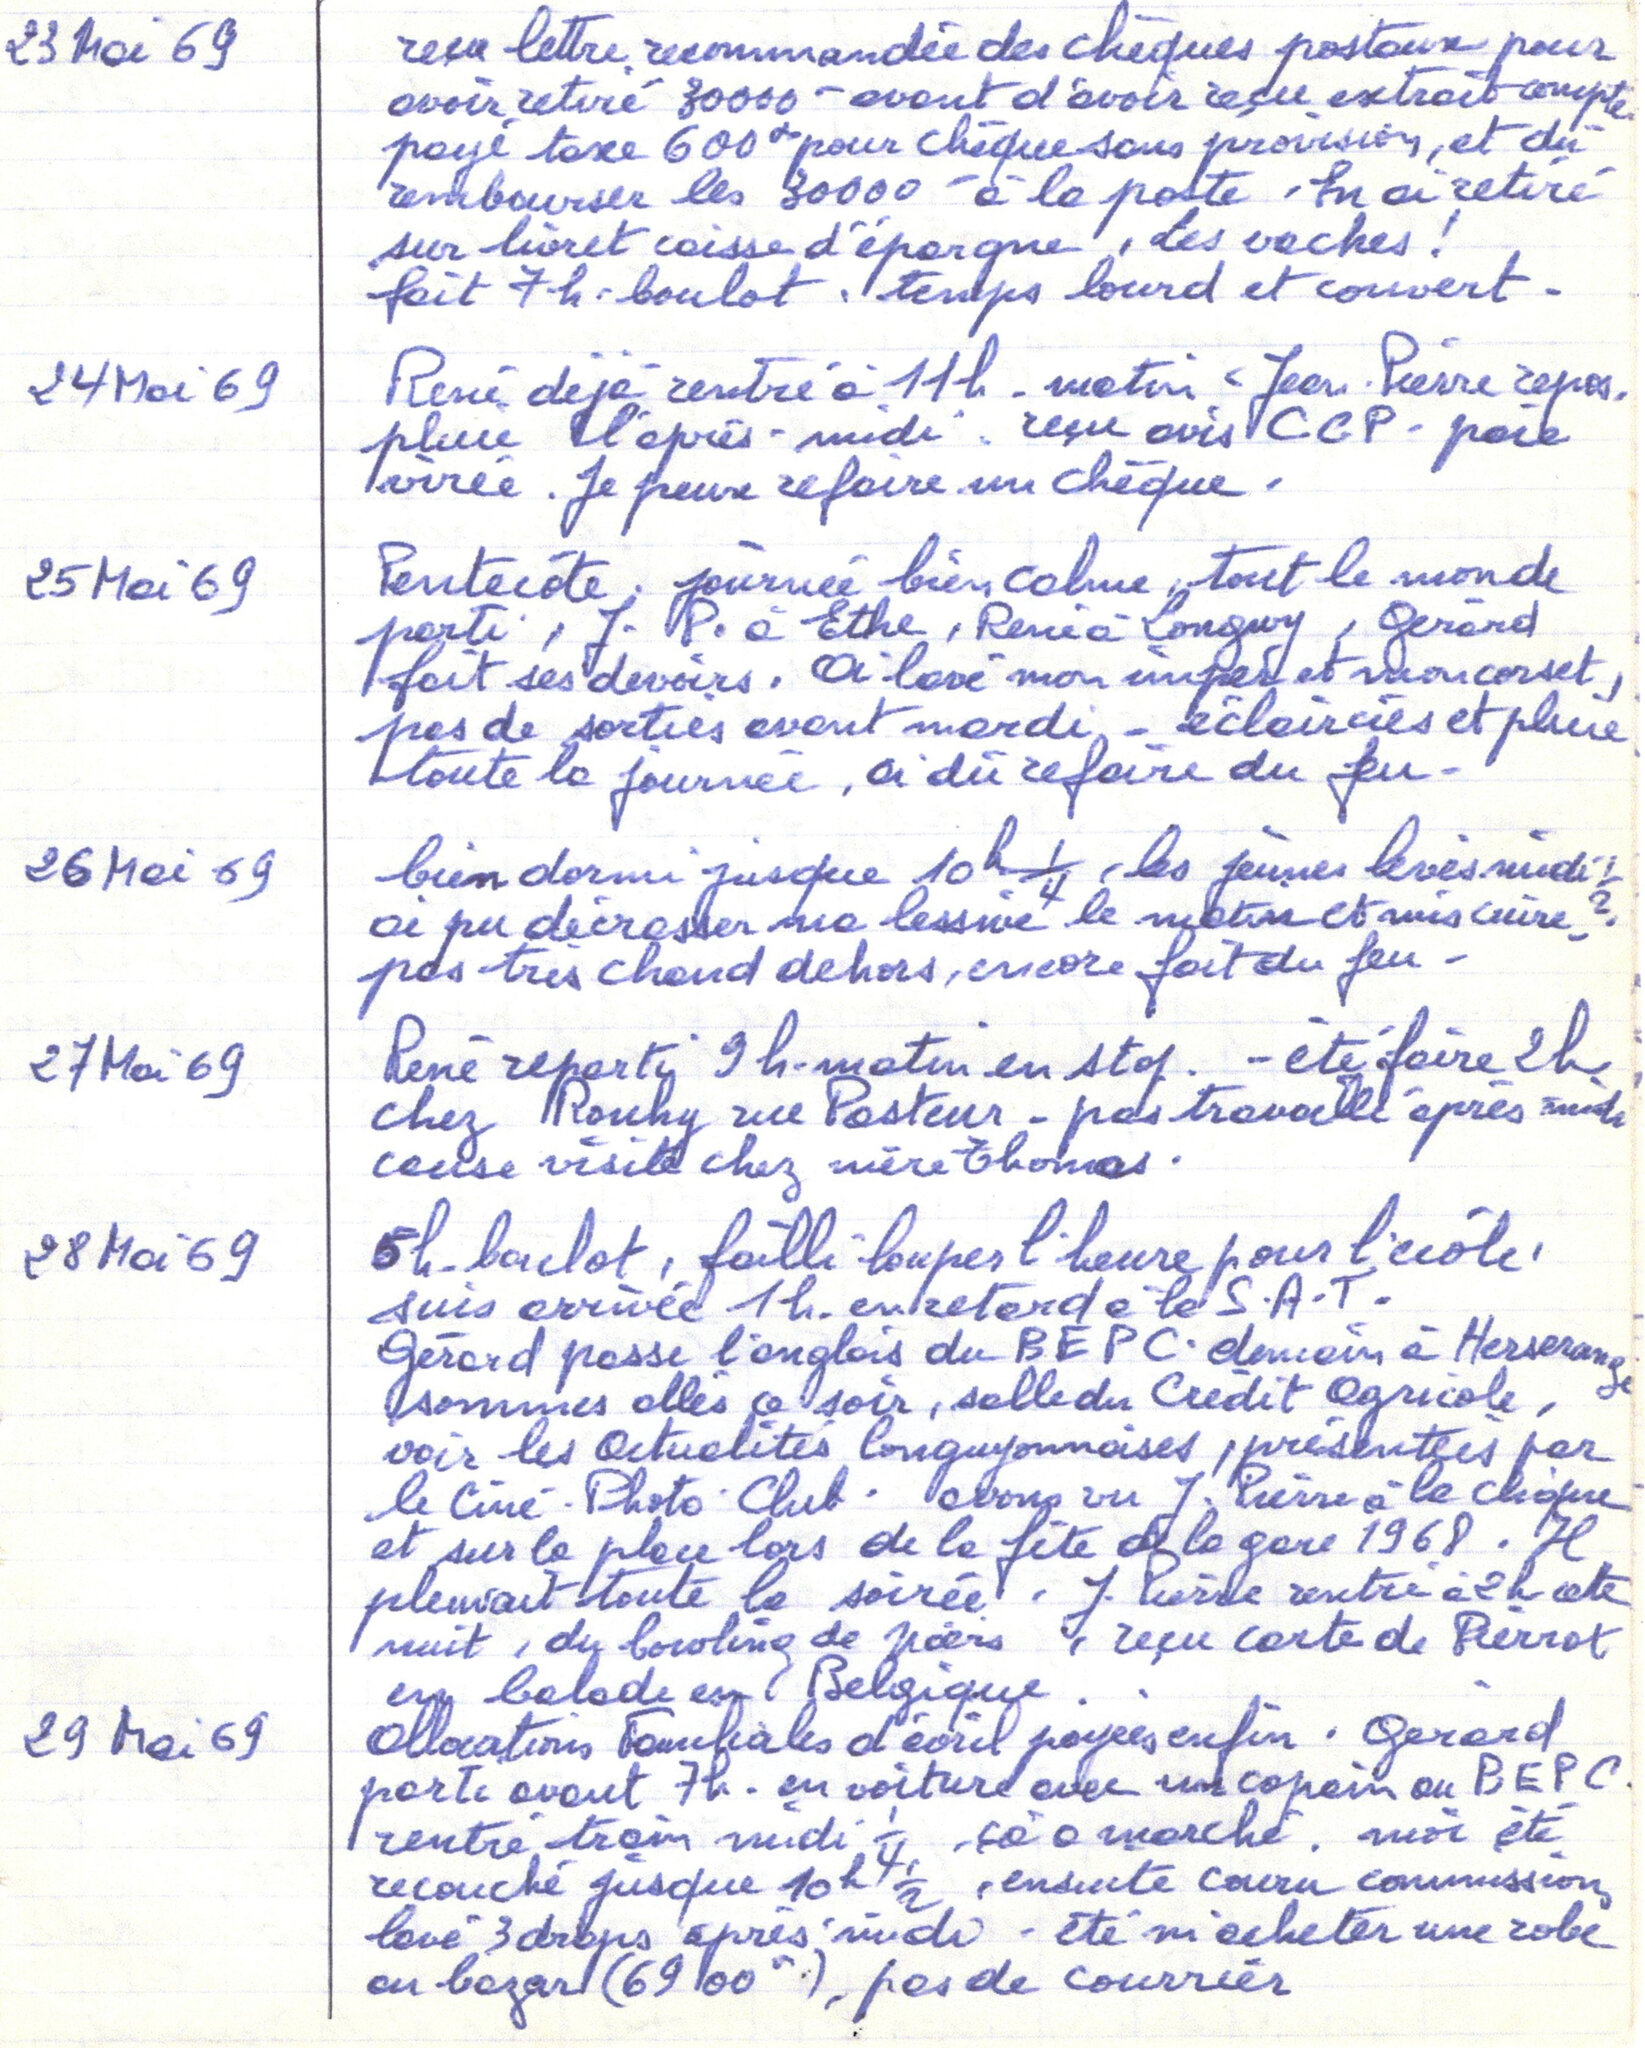 23 Mai 69 reçu lettre recommandée des chèques postaux pour
avoir retiré 30000 - avant d'avoir reçu extrait compte.
payé taxe 600 pour chèque sans provision, et dû
rembourser les 30000 - à la poste. En ai retiré
sur livret caisse d'épargne, les vaches!
fait 7h. boulot. temps lourd et couvert -
24 Mai 69 René déjà rentré à 11h - matin - Jean-Pierre repos.
pluie l'après-midi. reçu avis CCP - paie
virée. Je peux refaire un chèque.
25 Mai 69 Pentecôte. journée bien calme, tout le monde
parti, J. P. à Ethe, René à Longwy, Gérard
fait ses devoirs. Ai lavé mon imper et mon corset,
pas de sorties avant mardi - éclaircies et pluie
toute la journée, ai dû refaire du feu -
26 Mai 69 bien dormi jusque 10h 1/4, les jeunes levés midi 1/2.
ai pu décrasser ma lessive le matin et mis cuire -
pas très chaud dehors, encore fait du feu -
27 Mai 69 René reparti 9h-matin en stop. - été faire 2h
chez Rouhy rue Pasteur - pas travaillé après midi
cause visite chez mère Thomas.
28 Mai 69 5h-boulot, failli louper l'heure pour l'école,
suis arrivée 1h. en retard à la S.A.T.
Gérard passe l'anglais du BEPC. demain à Herserange
sommes allés ce soir, salle du Crédit Agricole,
voir les Actualités longuyonnaises, présentées par
le Ciné-Photo-Club. avons vu J. Pierre à la clique
et sur la place lors de la fête de la gare 1968. Il
pleuvait toute la soirée. J. Pierre rentré à 2h cette
nuit, du bowling de reçu carte de Pierrot
en balade en Belgique.
29 Mai 69 Allocations Familiales d'avril payées enfin. Gérard
parti avant 7h. en voiture avec un copain au BEPC.
rentré train midi 1/4, çà a marché. moi été
recouché jusque 10h 1/2, ensuite couru commissions
lavé 3 draps après-midi - été m'acheter une robe
au bazar (6900), pas de courrier